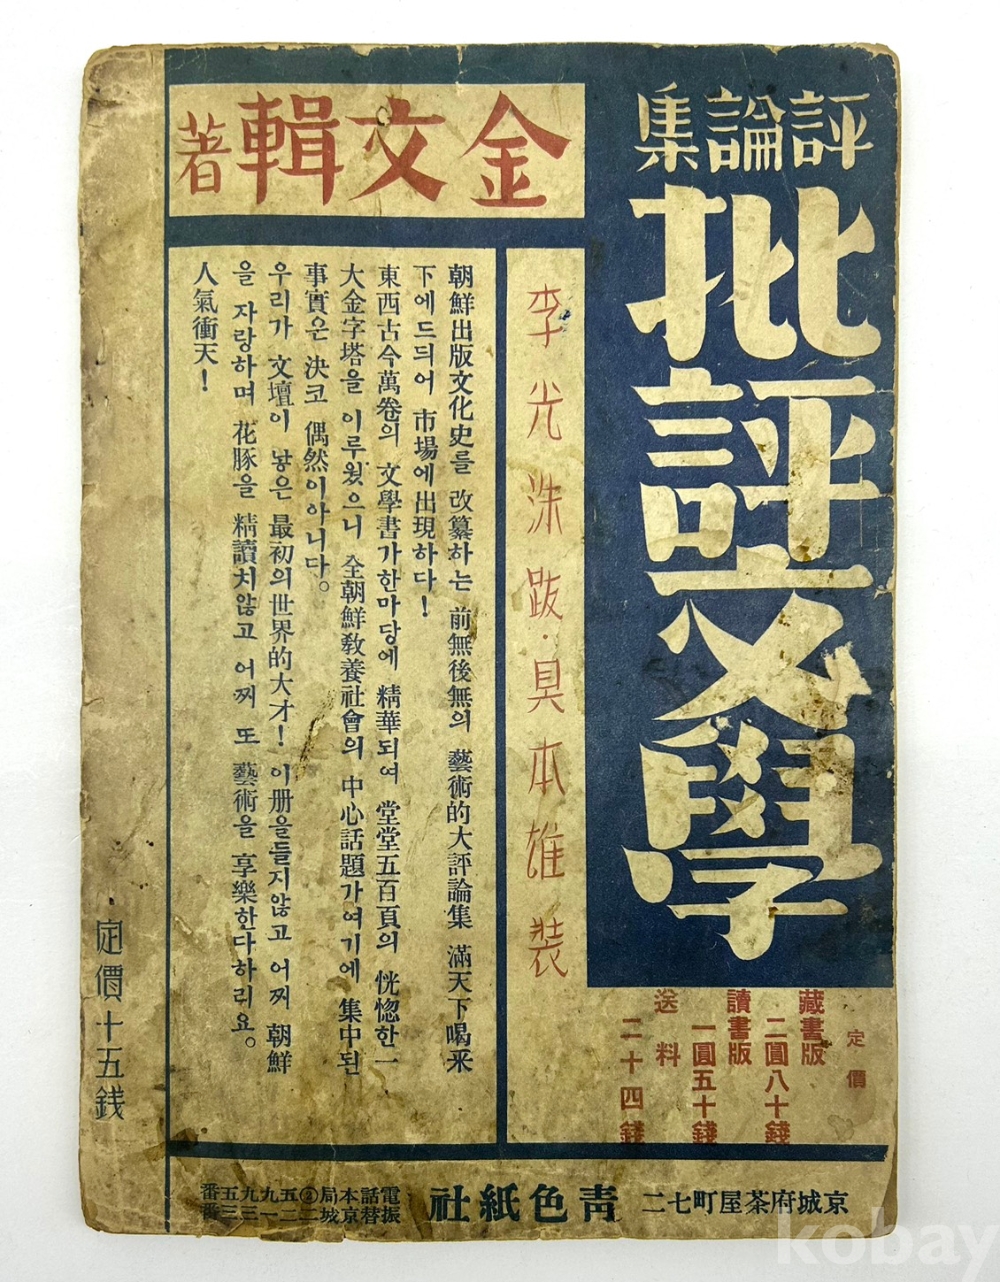 評論集
批評文學
金文輯著
李光洙跋・具本雄装
朝鮮出版文化史를 改纂하는 前無後無의 藝術的大評論集 滿天下喝采
下에드듸어 市場에出現하다!
東西古今萬卷의 文學書가한마당에 精華되여 堂堂五百頁의 恍惚한一
大金字塔을 이루웠으니 全朝鮮敎養社會의 中心話題가여기에 集中된
事實은 決코 偶然이아니다。
우리가 文壇이 낳은 最初의世界的大才! 이册을들지않고 어찌 朝鮮
을 자랑하며 花豚을 精讀치않고 어찌 또 藝術을 享樂한다하리요。
人氣衝天!
定價
藏書版
二圓八十錢
讀書版
一圓五十錢
送料
二十四錢
京城府茶屋町七二 靑色紙社
電話本局②五九九五番
振替京城二二一三三番
定價十五錢
kobay